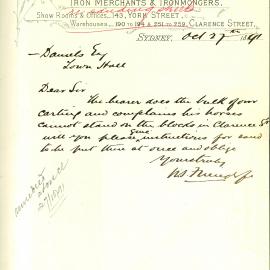 IRON MERCHANTS & IRONMONGERS.
Show Rooms & Offices, 143, YORK STREET,
Warehouses, 190 to 194 & 251 to 259, CLARENCE STREET,
SYDNEY, Oct 27th 1891
Daniels Esq
Town Hall
Dear Sir
The bearer does the bulk of our
carting and complains his horses
cannot stand on the blocks in Clarence St
will you please give instructions for sand
to be put there at once and oblige
Yours truly
27/10/91